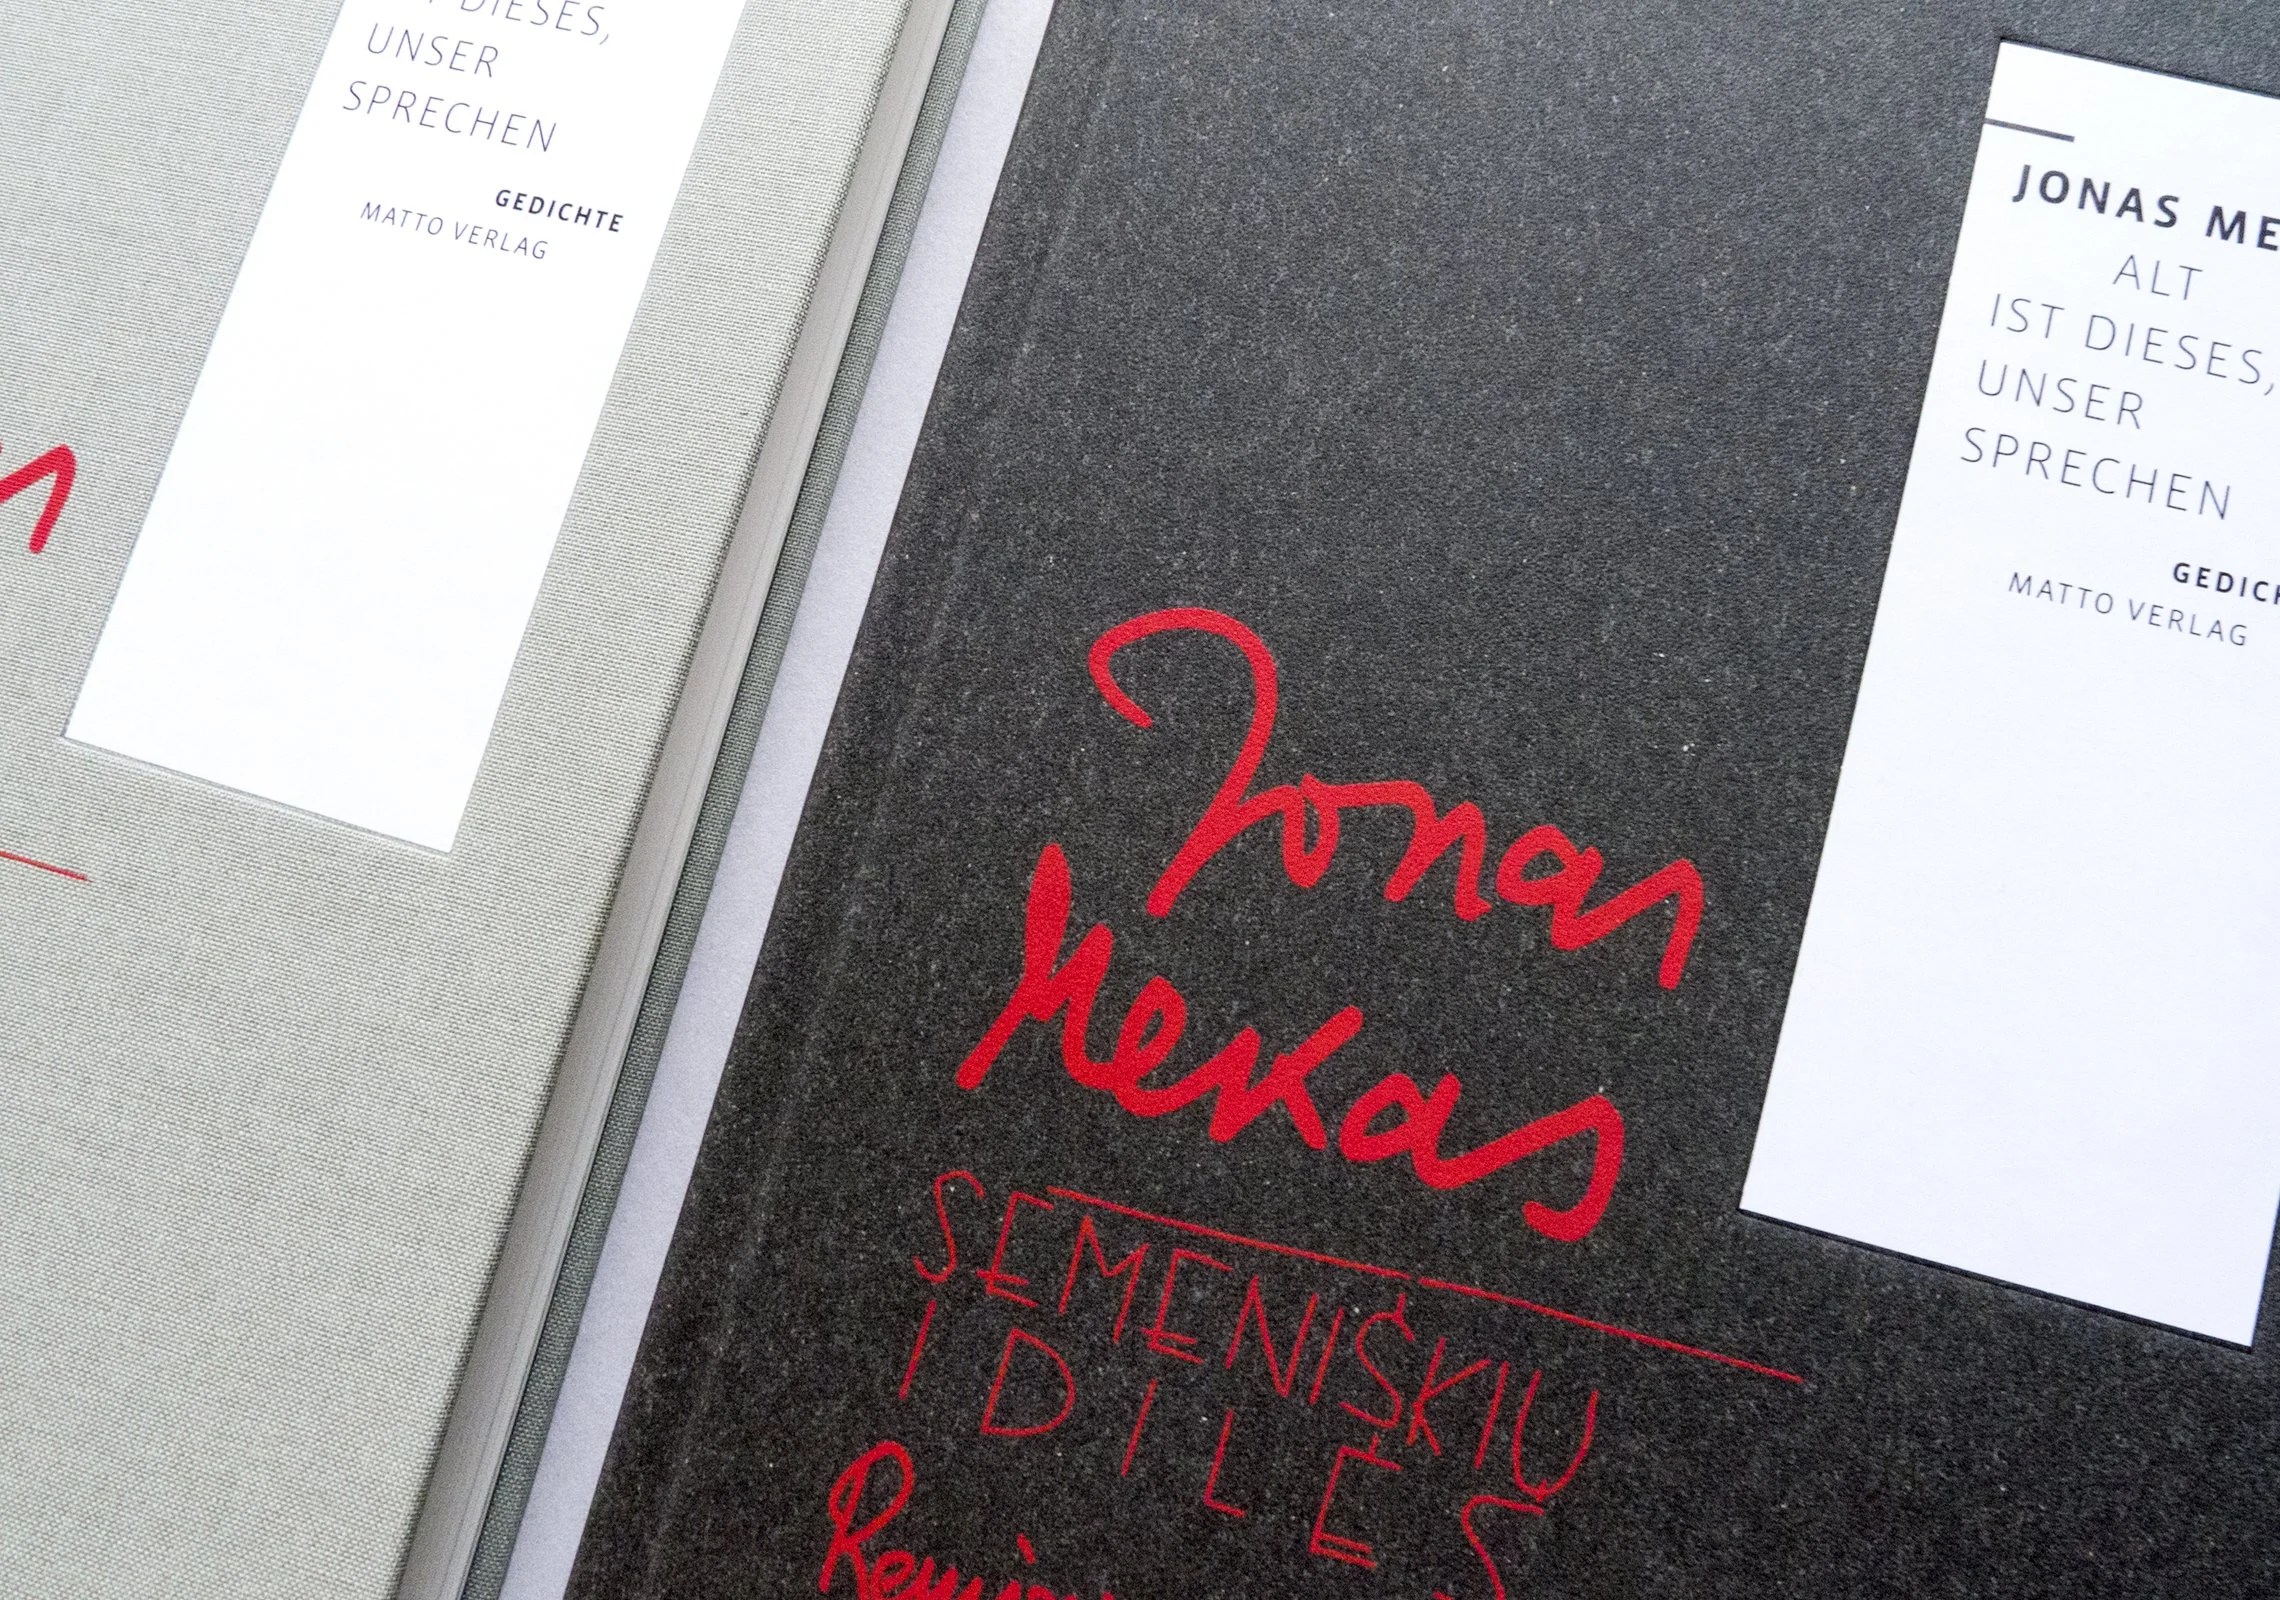 DIESES,
UNSER
SPRECHEN
GEDICHTE
MATTO VERLAG
JONAS ME
ALT
IST DIESES,
UNSER
SPRECHEN
GEDICH
MATTO VERLAG
Jonas
Mekas
SEMENIŠKIŲ
IDILĖS